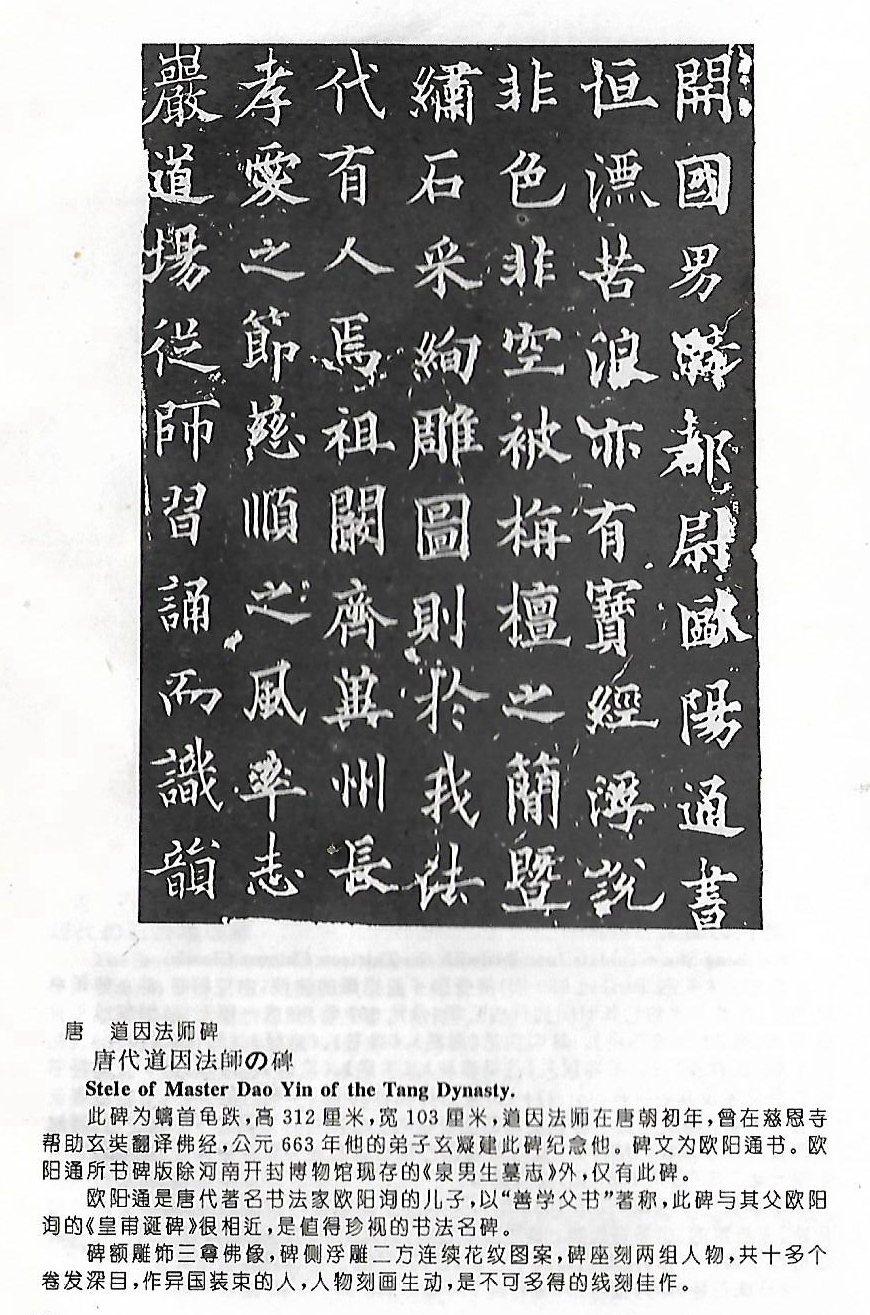 開國男騎都尉歐陽通書
恒漂苦浪亦有寶經浮說
非色非空被栴檀之簡暨
繡石采絢雕圖則於我法
代有人焉祖闞齊冀州長
孝愛之節慈順之風率志
嚴道場從師習誦而識韻
唐 道因法师碑
唐代道因法師の碑
Stele of Master Dao Yin of the Tang Dynasty.
此碑为螭首龟跌，高 312 厘米，宽 103 厘米，道因法师在唐朝初年，曾在慈恩寺
帮助玄奘翻译佛经，公元 663 年他的弟子玄凝建此碑纪念他。碑文为欧阳通书。欧
阳通所书碑版除河南开封博物馆现存的《泉男生墓志》外，仅有此碑。
欧阳通是唐代著名书法家欧阳询的儿子，以“善学父书”著称，此碑与其父欧阳
询的《皇甫诞碑》很相近，是值得珍视的书法名碑。
碑额雕饰三尊佛像，碑侧浮雕二方连续花纹图案，碑座刻两组人物，共十多个
卷发深目，作异国装束的人，人物刻画生动，是不可多得的线刻佳作。